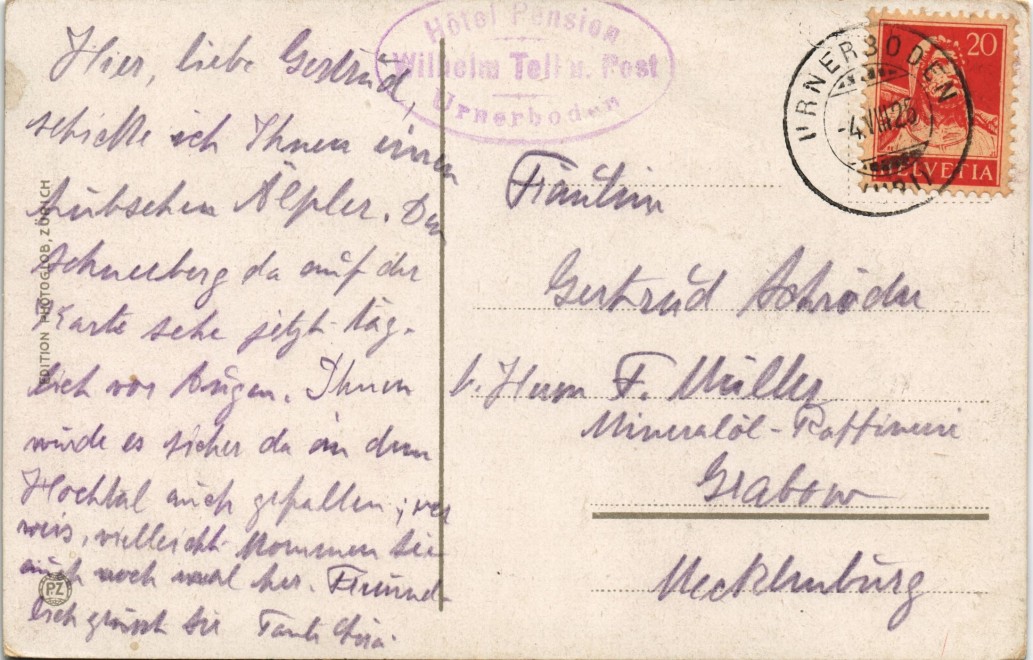 Hier, liebe Gertrud,
schicke ich Ihnen einen
hübschen Älpler. Den
Schneeberg da auf der
Karte sehe jetzt täg-
lich vor Augen. Ihnen
würde es sicher da in dem
Hochtal auch gefallen; wer
weis, vielleicht kommen Sie
auch noch mal her. Freund-
lich grüsst Sie Tante
EDITION PHOTOGLOB, ZÜRICH
PZ
Hôtel Pension
Wilhelm Tell u. Post
Urnerboden
URNERBODEN
-4.VIII.25
(URI)
20
HELVETIA
Fräulein
Gertrud Schröder
b. Herrn F. Müller
Mineralöl-Raffinerie
Grabow
Mecklenburg